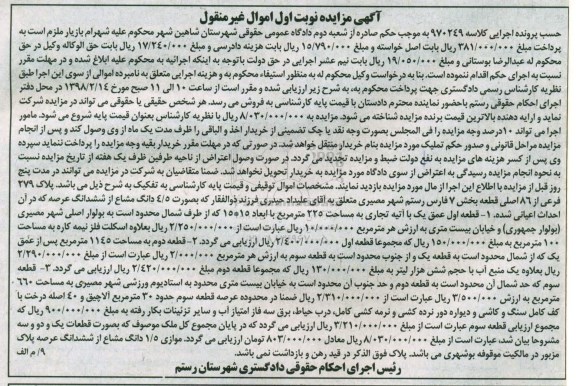 آگهی مزایده نوبت اول اموال غیرمنقول
حسب پرونده اجرایی کلاسه ۹۷۰۲۴۹ به موجب حکم صادره از شعبه دوم دادگاه عمومی حقوقی شهرستان شاهین شهر محکوم علیه شهرام بازیار ملزم است به
پرداخت مبلغ ۳۸۱/۰۰۰/۰۰۰ ریال بابت اصل خواسته و مبلغ ۱۵/۷۹۰/۰۰۰ ریال بابت هزینه دادرسی و مبلغ ۱۷/۲۴۰/۰۰۰ ریال بابت حق الوکاله وکیل در حق
محکوم له عبدالرضا بوستانی و مبلغ ۱۹/۰۵۰/۰۰۰ ریال بابت نیم عشر اجرایی در حق دولت باتوجه به اینکه اجرائیه به محکوم علیه ابلاغ شده و در مهلت مقرر
نسبت به اجرای حکم اقدام ننموده است. بنا به درخواست وکیل محکوم له به منظور استیفاء محکوم به و هزینه اجرایی متعلق به نامبرده اموالی از سوی این اجرا طبق
نظریه کارشناس رسمی دادگستری جهت پرداخت محکوم به، به شرح زیر ارزیابی شده و مقرر است از ساعت ۱۰ الی ۱۱ صبح مورخ ۱۳۹۸/۲/۱۴ در محل دفتر
اجرای احکام حقوقی رستم باحضور نماینده محترم دادستان با قیمت پایه کارشناسی به فروش می رسد. هر شخص حقیقی یا حقوقی می تواند در مزایده شرکت
نماید و ارایه دهنده بالاترین قیمت برنده مزایده شناخته می شود. مزایده به ۸/۰۳۰/۰۰۰/۰۰۰ ریال با نظریه کارشناس بعنوان قیمت پایه شروع می شود. مامور
اجرا می تواند ۱۰درصد وجه مزایده را فی المجلس بصورت وجه نقد یا چک تضمینی از خریدار اخذ و الباقی را ظرف مدت یک ماه از وی وصول کند و پس از انجام
مزایده مراحل قانونی و صدور حکم تملیک مورد مزایده بنام خریدار منتقل خواهد شد. در صورتی که در مهلت مقرر خریدار بقیه وجه مزایده را پرداخت ننماید سپرده
وی پس از کسر هزینه های مزایده به نفع دولت ضبط و مزایده تجدید می گردد. در صورت وصول اعتراض از ناحیه طرفین ظرف یک هفته از تاریخ مزایده نسبت
به نحوه انجام مزایده رسیدگی به اعتراض از سوی دادگاه مورد مزایده به خریدار تحویل نخواهد شد. ضمنا متقاضیان به شرکت در مزایده می توانند در مدت پنج
روز قبل از مزایده با اطلاع این اجرا از مال مورد مزایده بازدید نمایند. مشخصات اموال توقیفی و قیمت پایه کارشناسی به تفکیک به شرح ذیل می باشد. پلاک ۲۷۹
فرعی از ۸۶ اصلی قطعه بخش ۷ فارس رستم شهر مصیری متعلق به آقای علیداد حیدری فرزند ذوالفقار که بصورت ۴/۵ دانگ مشاع از ششدانگ عرصه که در آن
احداث اعیانی شده. ۱- قطعه اول عمق یک با آتیه تجاری به مساحت ۲۲۵ مترمربع با ابعاد ۱۵×۱۵ که از طرف شمال محدود است به بولوار اصلی شهر مصیری
(بولوار جمهوری) و خیابان بیست متری به ارزش هر مترمربع ۱۰/۰۰۰/۰۰۰ ریال عبارت است از ۲/۲۵۰/۰۰۰/۰۰۰ ریال بعلاوه اسکلت فلز نیمه کاره به مساحت
۱۰۰ مترمربع به مبلغ ۱۵۰/۰۰۰/۰۰۰ ریال که مجموعا قطعه اول ۲/۴۰۰/۰۰۰/۰۰۰ ریال ارزیابی می گردد. ۲- قطعه دوم به مساحت ۱۱۴۵ مترمربع پس از عمق
یک که از شمال محدود است به قطعه یک و از جنوب محدود است به قطعه سوم به ارزش هر مترمربع ۲/۰۰۰/۰۰۰ ریال عبارت است از مبلغ ۲/۲۹۰/۰۰۰/۰۰۰
ریال بعلاوه یک منبع آب با حجم شش هزار لیتر به مبلغ ۱۳۰/۰۰۰/۰۰۰ ریال که مجموعا قطعه دوم مبلغ ۲/۴۲۰/۰۰۰/۰۰۰ ریال ارزیابی می گردد. ۳- قطعه
سوم که حد شمال آن محدود است به قطعه دوم و حد جنوب آن محدود است به خیابان بیست متری محدود به استادیوم ورزشی شهر مصیری به مساحت ۶۶۰
مترمربع به ارزش ۳/۵۰۰/۰۰۰ ریال عبارت است از ۲/۳۱۰/۰۰۰/۰۰۰ ریال ضمنا در محدوده عرصه قطعه سوم حدود ۳۰ مترمربع آلاچیق و ۴۰ اصله درخت با
کف کامل سنگ و کاشی و دیواره دور نرده کشی و نرمه کشی کامل، درب حیاط، برق سه فاز امتیاز آب و سایر تزئینات بکار رفته به مبلغ ۹۰۰/۰۰۰/۰۰۰ ریال که
مجموع ارزیابی قطعه سوم عبارت است از مبلغ ۳/۲۱۰/۰۰۰/۰۰۰ ریال ارزیابی می گردد که در پایان مجموع کل ملک موصوف که بصورت قطعات یک و دو و سه
مشروحا بیان شد، عبارت است از مبلغ ۸/۰۳۰/۰۰۰/۰۰۰ ریال معادل ۸۰۳/۰۰۰/۰۰۰ تومان ارزیابی می گردد. موازی ۱/۵ دانگ مشاع از ششدانگ عرصه پلاک
مزبور در مالکیت موقوفه بوشهری می باشد. پلاک فوق الذکر در قید رهن و بازداشت نمی باشد.
۹/ م الف
رئیس اجرای احکام حقوقی دادگستری شهرستان رستم